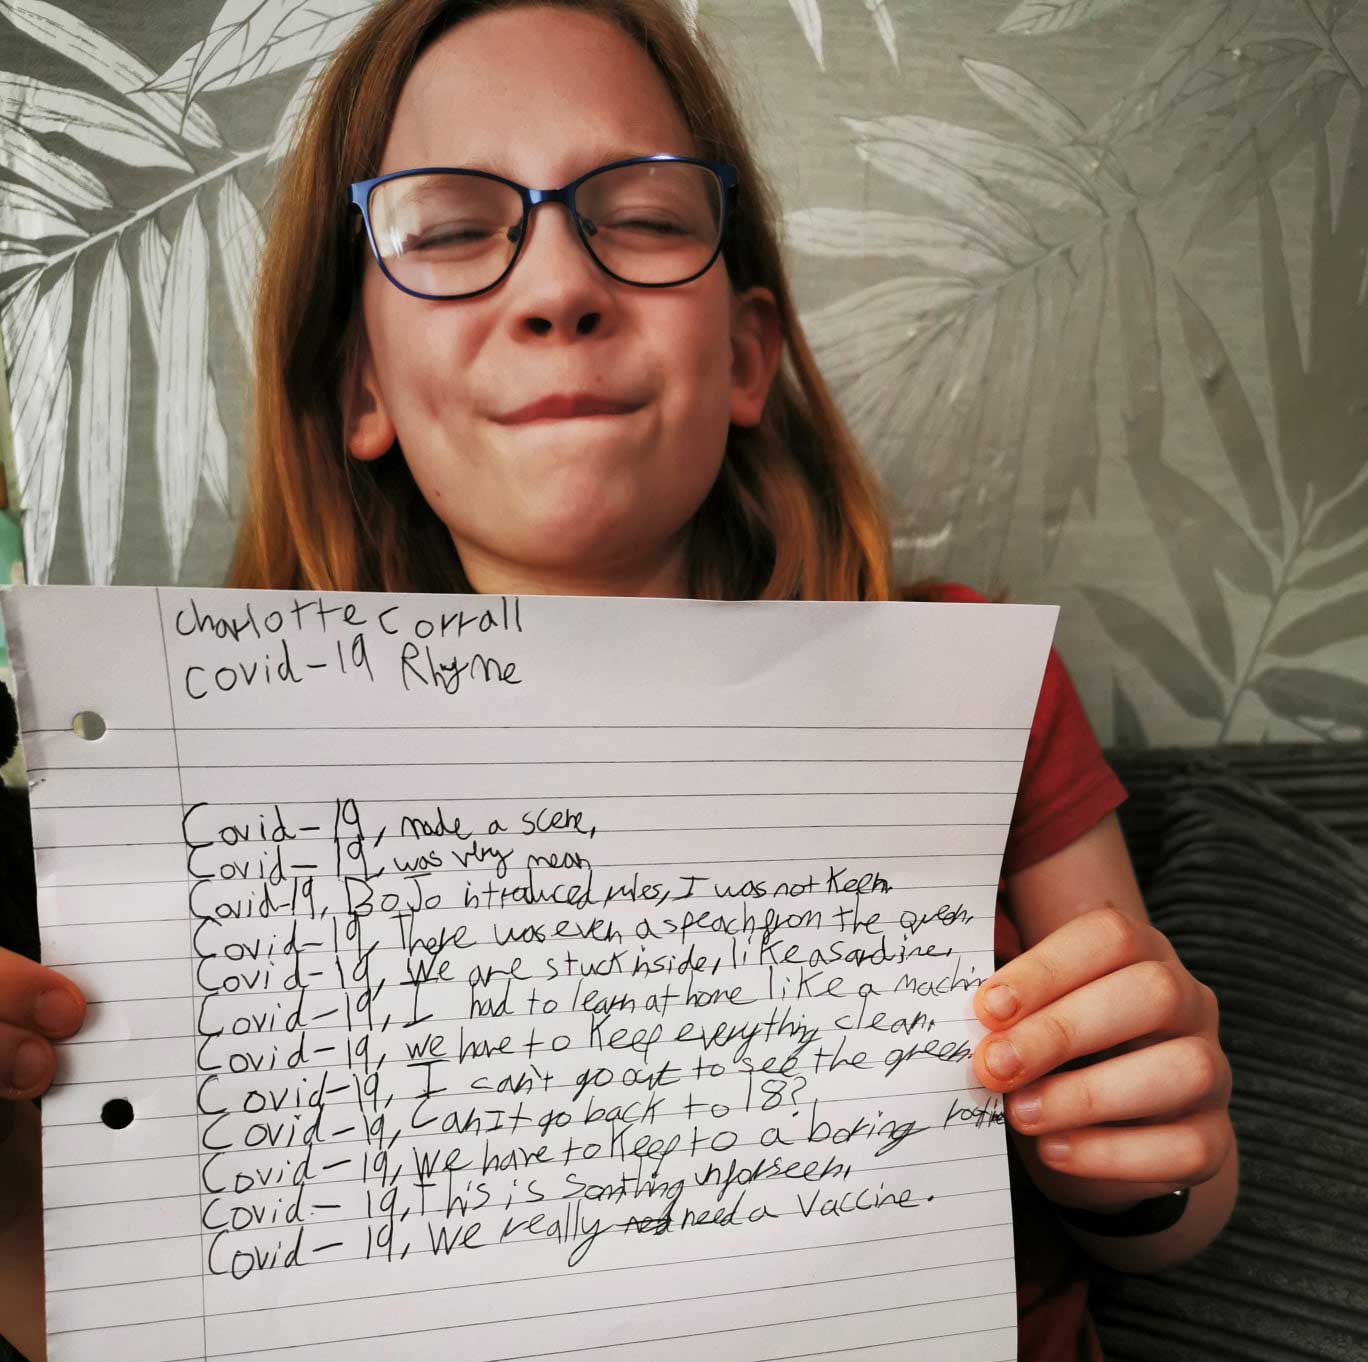 Charlotte Corrall
Covid-19 Rhyme
Covid-19, made a scene,
Covid-19, was very mean
Covid-19, BoJo introduced rules, I was not Keen.
Covid-19, There was even a speach from the queen,
Covid-19, We are stuck inside, like a sardine,
Covid-19, I had to learn at home like a machin
Covid-19, we have to Keep everything clean,
Covid-19, I can't go out to see the green.
Covid-19, Can It go back to 18?,
Covid-19, We have to Keep to a boring
Covid-19, This is Somthing unforseen,
Covid-19, We really need a Vaccine.